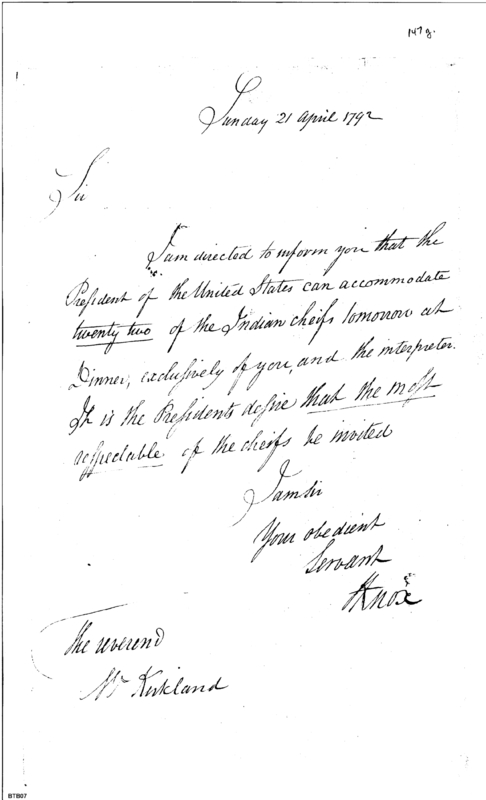 147g.
Sunday 21 April 1792
Sir
I am directed to inform you that the
President of the United States can accommodate
twenty two of the Indian cheifs tomorrow at
Dinner, exclusively of you, and the interpreter.
It is the Presidents desire that the most
respectable of the cheifs be invited
I am sir
Your obedient
Servant
HKnox
The reverend
Mr Kirkland
BTB07